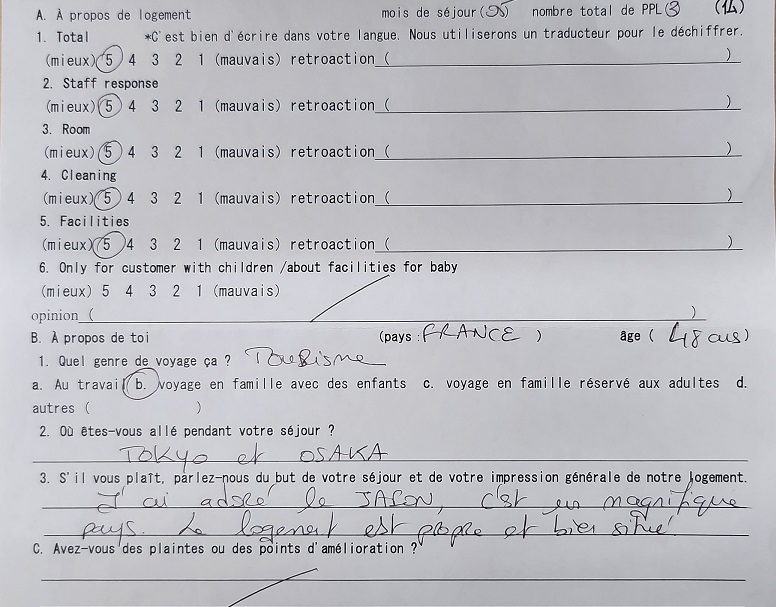 A. À propos de logement mois de séjour(05) nombre total de PPL(3) (14)
1. Total *C'est bien d'écrire dans votre langue. Nous utiliserons un traducteur pour le déchiffrer.
(mieux) 5 4 3 2 1 (mauvais) retroaction ( )
2. Staff response
(mieux) 5 4 3 2 1 (mauvais) retroaction ( )
3. Room
(mieux) 5 4 3 2 1 (mauvais) retroaction ( )
4. Cleaning
(mieux) 5 4 3 2 1 (mauvais) retroaction ( )
5. Facilities
(mieux) 5 4 3 2 1 (mauvais) retroaction ( )
6. Only for customer with children /about facilities for baby
(mieux) 5 4 3 2 1 (mauvais)
opinion ( )
B. À propos de toi (pays : FRANCE ) âge ( 48 ans)
1. Quel genre de voyage ça ? Tourisme
a. Au travail b. voyage en famille avec des enfants c. voyage en famille réservé aux adultes d.
autres ( )
2. Où êtes-vous allé pendant votre séjour ?
TOKYO et OSAKA
3. S'il vous plaît, parlez-nous du but de votre séjour et de votre impression générale de notre logement.
J'ai adoré le JAPON, c'est un magnifique
pays. Le logement est propre et bien situé.
C. Avez-vous des plaintes ou des points d'amélioration ?